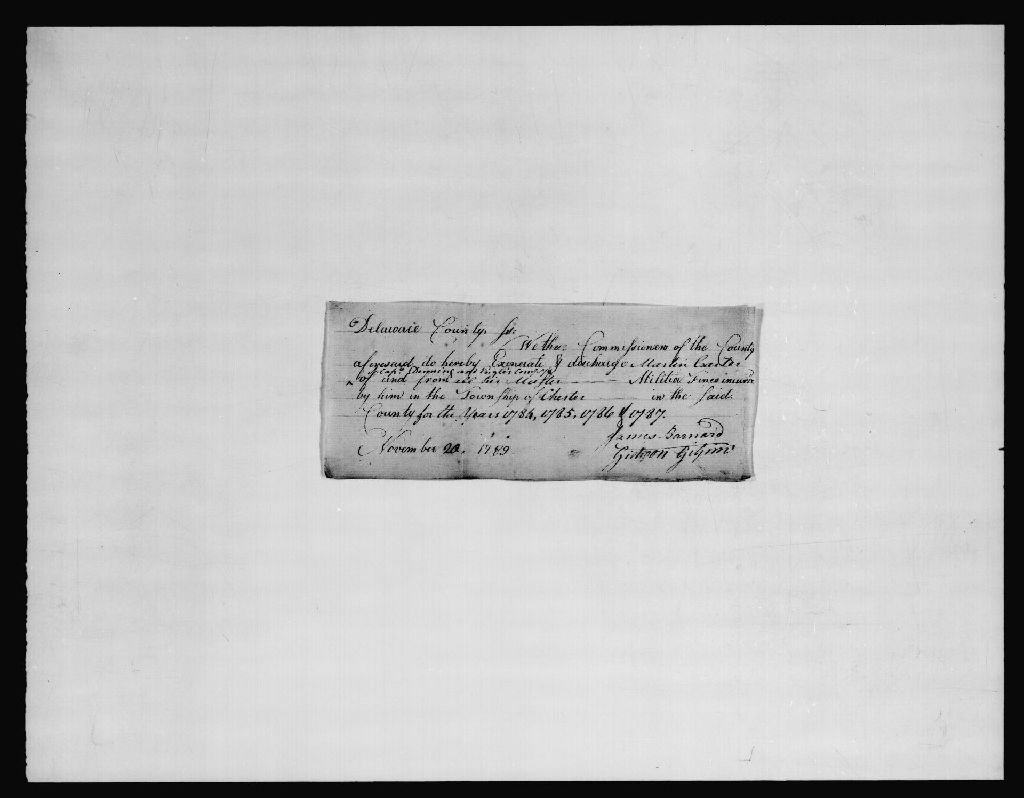 Delaware County Ss:
We the Commissioners of the County
aforesaid do hereby Exonerate & discharge Martin
Capt
of and from all his Muster Militia Fines incurr'd
by him in the Township of Chester in the said
County for the Years 1784, 1785, 1786 & 1787.
James Barnard
November 20, 1789 Gideon Gilpin